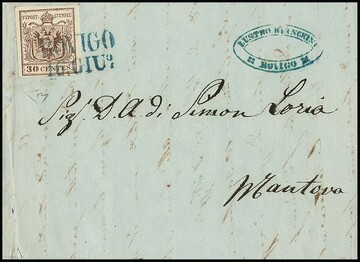 K.K.POST-STEMPEL
30 CENTES
VIGO
GIU⁰
ROVIGO
Sig.ʳ D. A di Simon Loria
Mantova